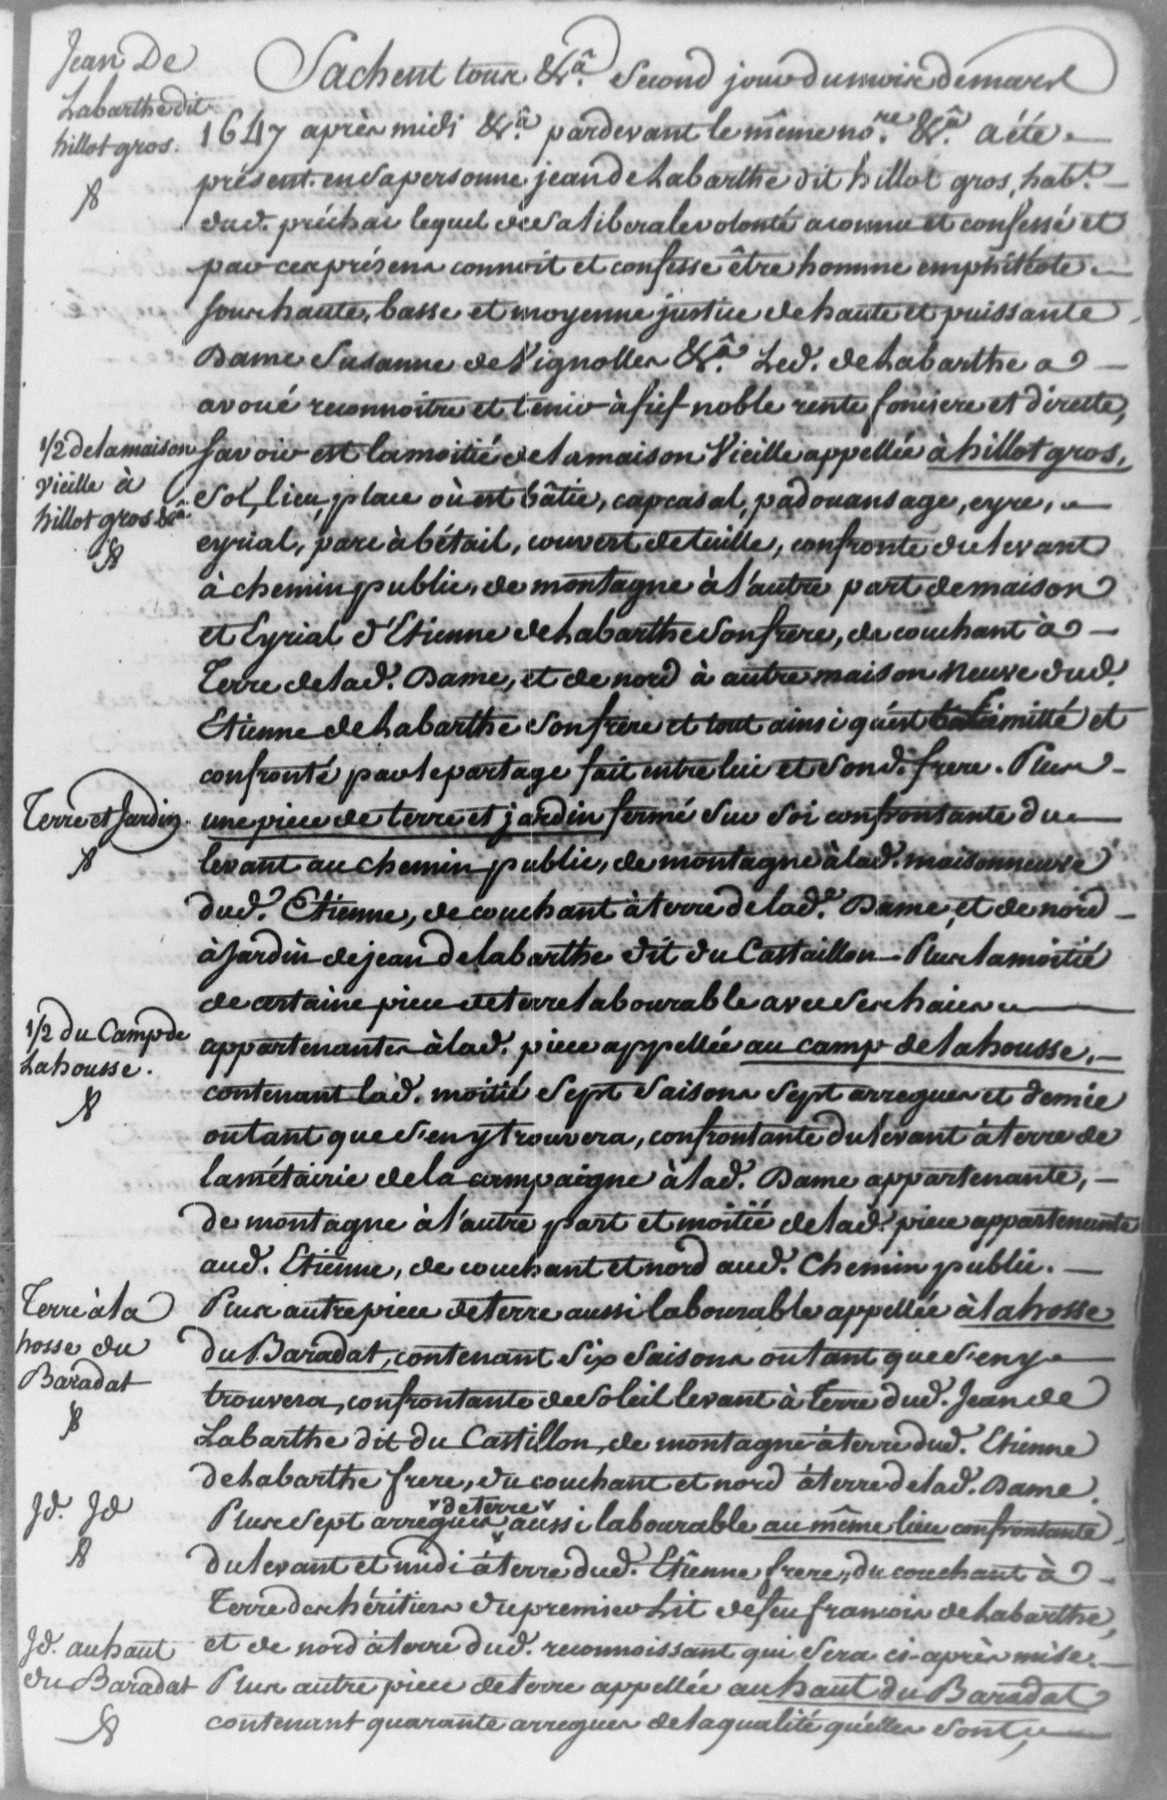 Jean De
Labarthe dit
hillot gros.
Sachent tous &ca. Second jour du mois de mars
1647 après midi &ca. pardevant le même nore. &ca. a été
présent en sa personne jean de Labarthe dit hillot gros, habt.
dud. préchac lequel de sa liberale volonté a connu et confessé et
par ces présens connoit et confesse être homme emphitéote
sous haute, basse et moyenne justice de haute et puissante
Dame Susanne de Vignolles &ca. Led. de Labarthe a
avoué reconnoitre et tenir à fief noble rente fonciere et directe,
1/2 de la maison
vieille à
hillot gros &ca.
Savoir est la moitié de la maison Vieille appellée à hillot gros,
sol, lieu, place où est bâtie, capcasal, padouansage, eyre,
eyrial, parc à bétail, couvert de tuille, confronte du levant
à chemin public, de montagne à l'autre part de maison
et Eyrial d'Etienne de Labarthe son frere, de couchant à
Terre de lad. Dame, et de nord à autre maison neuve dud.
Etienne de Labarthe son frere et tout ainsi qu'est limitté et
confronté par le partage fait entre lui et sond. frere. Plus
Terre et Jardin.
une piece de terre et jardin fermé sur soi confrontante du
levant au chemin public, de montagne à lad. maison neuve
dud. Etienne, de couchant à terre de lad. Dame et de nord
à Jardin de jean de Labarthe dit du Castaillon. Plus la moitié
de certaine piece de terre labourable avec ses haies
1/2 du Camp de
Lahousse.
appartenantes à lad. piece appellée au camp de lahousse,
contenant lad. moitié sept saisons sept arregues et demie
ou tant que s'en y trouvera, confrontante du levant à terre de
la métairie de la campaigne à lad. Dame appartenante,
de montagne à l'autre part et moitié de lad. piece appartenante
aud. Etienne, de couchant et nord aud. Chemin public.
Terre à la
hosse du
Baradat
Plus autre piece de terre aussi labourable appellée à la hosse
du Baradat, contenant six saisons ou tant que s'en y
trouvera, confrontante de soleil levant à Terre dud. Jean de
Labarthe dit du Castillon, de montagne à terre dud. Etienne
de Labarthe frere, du couchant et nord à terre de lad. Dame.
Jd. Jd
de terre
Plus sept arregues aussi labourable au même lieu confrontante
du levant et midi à terre dud. Etienne frere, du couchant à
Terre des héritiers du premier Lit de feu francois de Labarthe,
et de nord à terre dud. reconnoissant qui sera ci-après mise.
Jd. au haut
du Baradat
Plus autre piece de terre appellée au haut du Baradat
contenant quarante arregues de la qualité qu'elles sont,